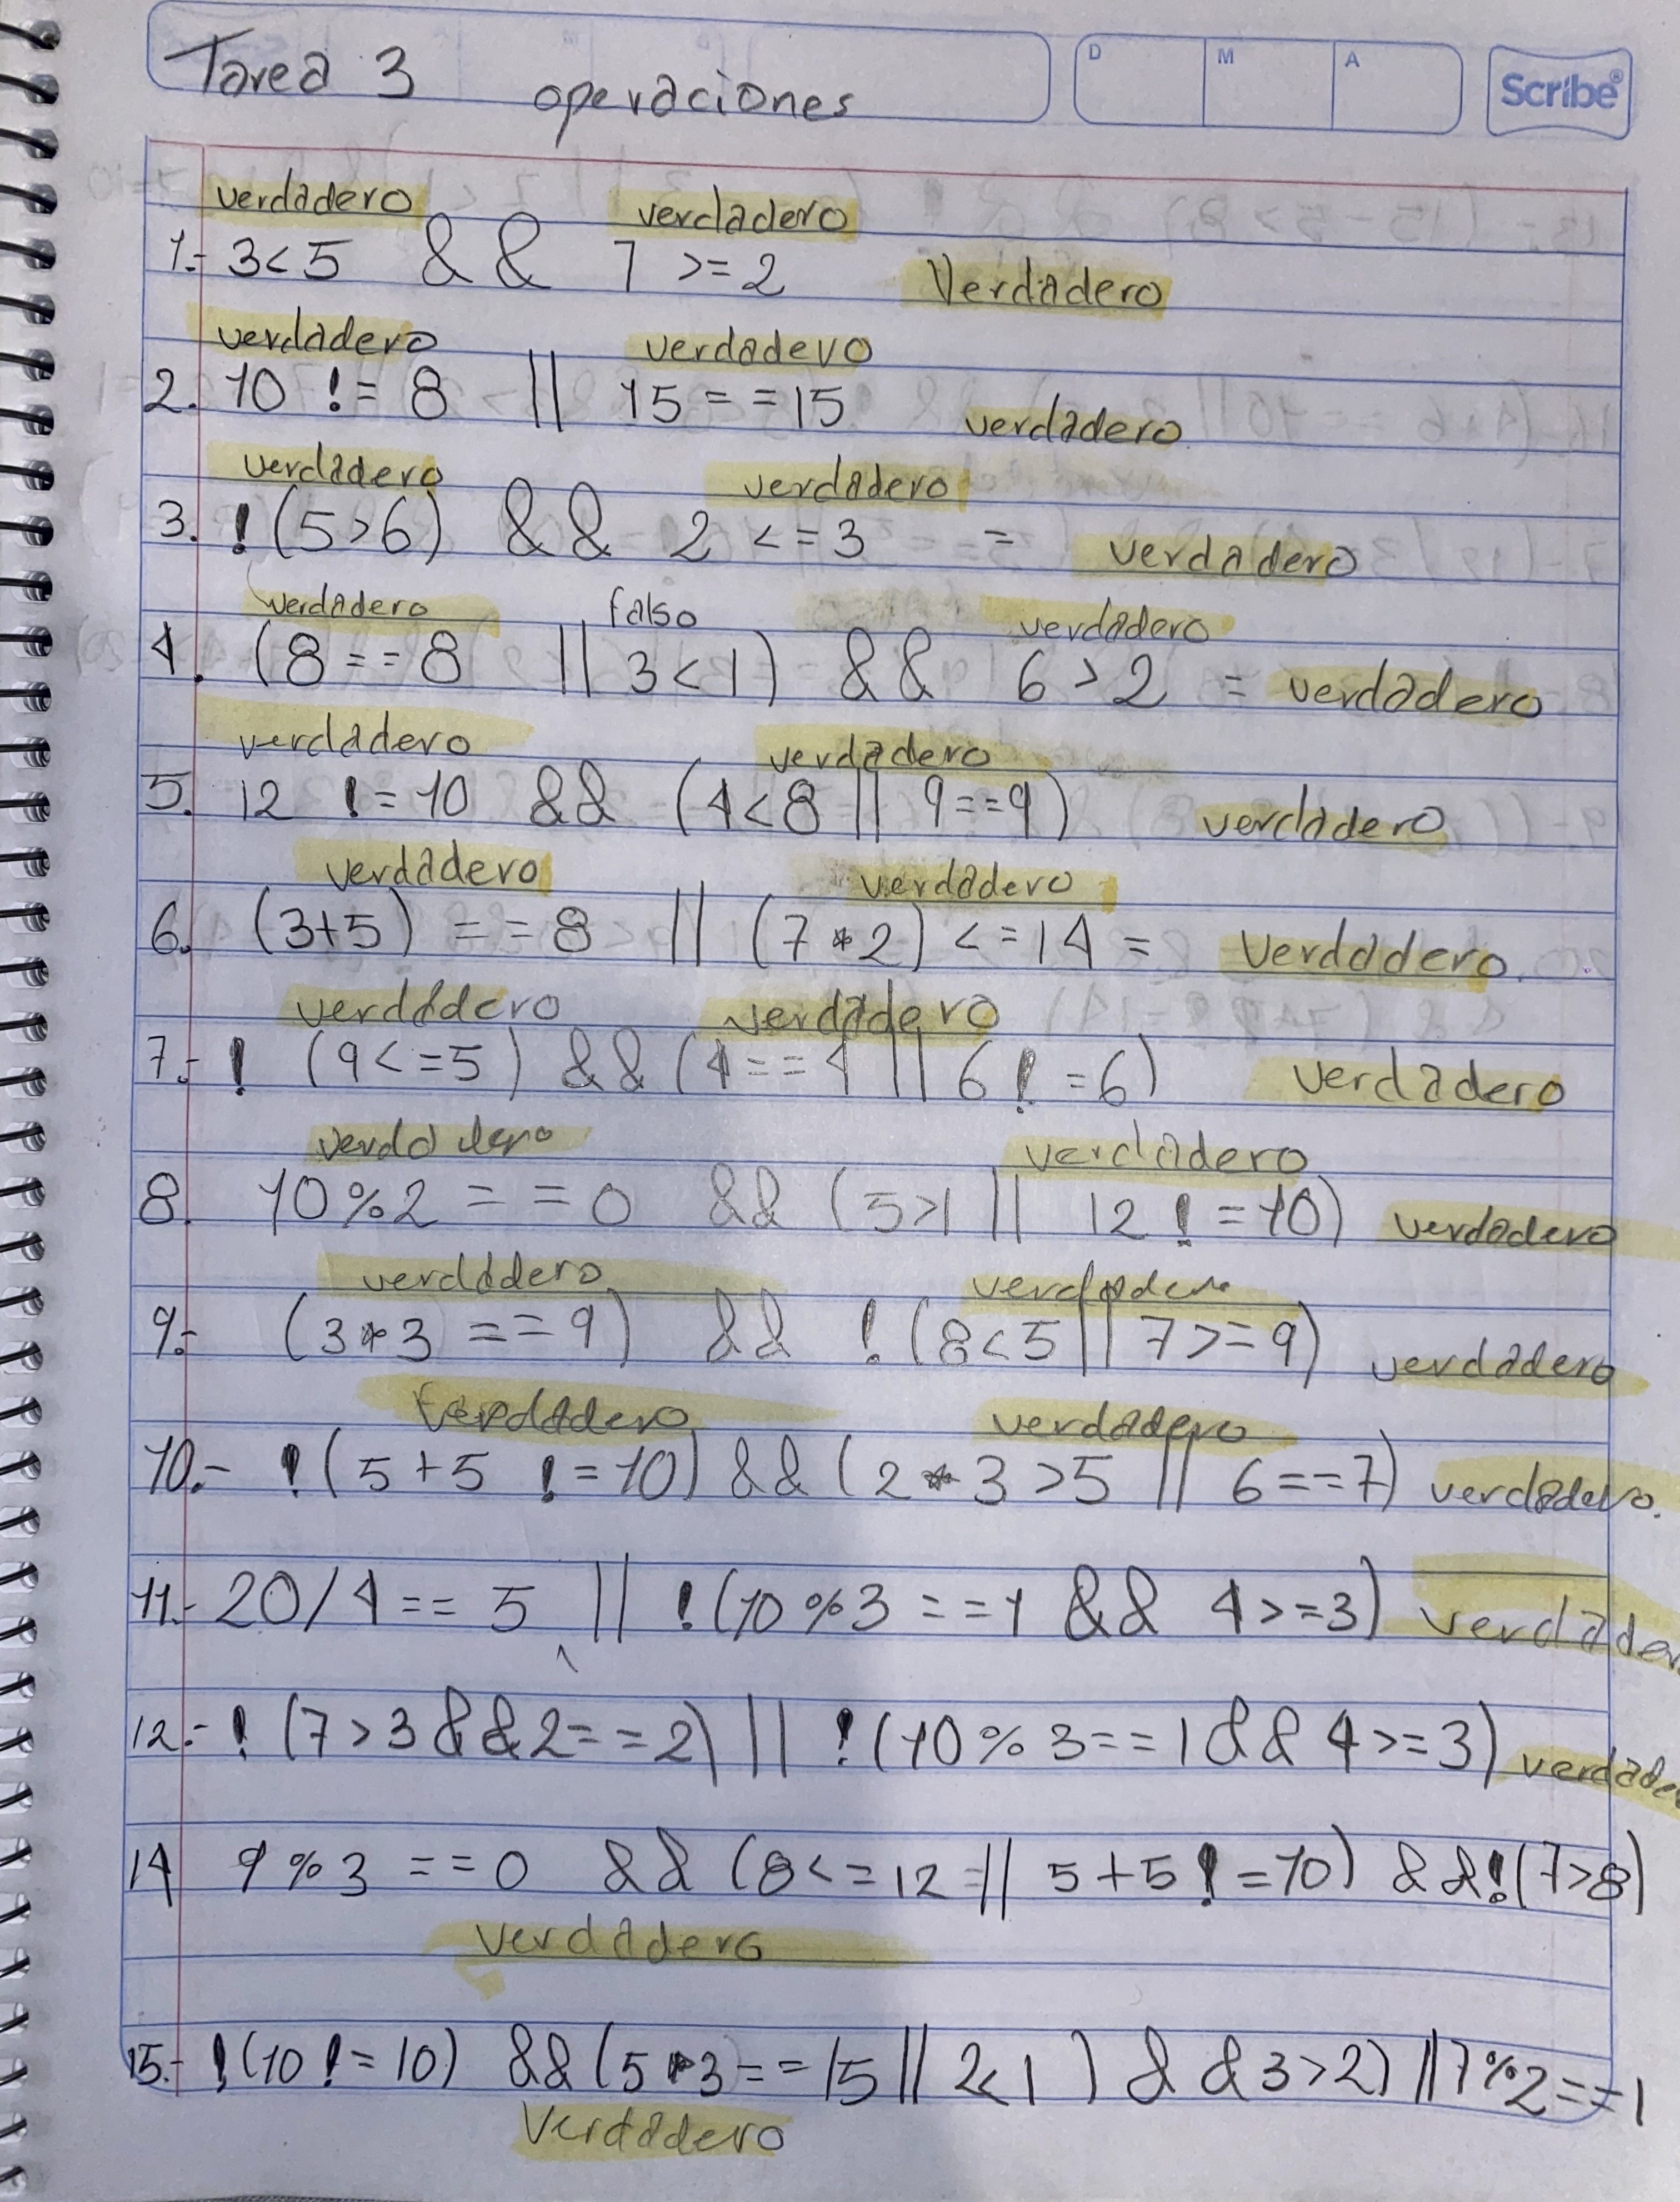 Tarea 3 operaciones
D M A
Scribe®
verdadero verdadero
1.- 3<5 && 7 >= 2 Verdadero
verdadero verdadero
2. 10 != 8 || 15 == 15 verdadero
verdadero verdadero
3. !(5>6) && 2 <= 3 = verdadero
verdadero falso verdadero
4. (8 == 8 || 3<1) && 6 > 2 = verdadero
verdadero verdadero
5. 12 != 10 && (4<8 || 9==9) verdadero
verdadero verdadero
6. (3+5) == 8 || (7 * 2) <= 14 = Verdadero.
verdadero verdadero
7.- ! (9<=5) && (4==4 || 6 != 6) verdadero
verdadero verdadero
8. 10%2 == 0 && (5>1 || 12 != 10) verdadero
verdadero verdadero
9.- (3*3 == 9) && !(8<5 || 7>=9) verdadero
verdadero verdadero
10.- !(5+5 != 10) && (2*3>5 || 6==7) verdadero.
11.- 20/4 == 5 || !(10%3 == 1 && 4>=3) verdader
12.- ! (7>3 && 2==2) || !(10%3==1 && 4>=3) verdader
14 9%3 == 0 && (8<=12 || 5+5 != 10) && !(7>8)
verdadero
15.- !(10 != 10) && (5*3 == 15 || 2<1) && 3>2) || 7%2==1
Verdadero